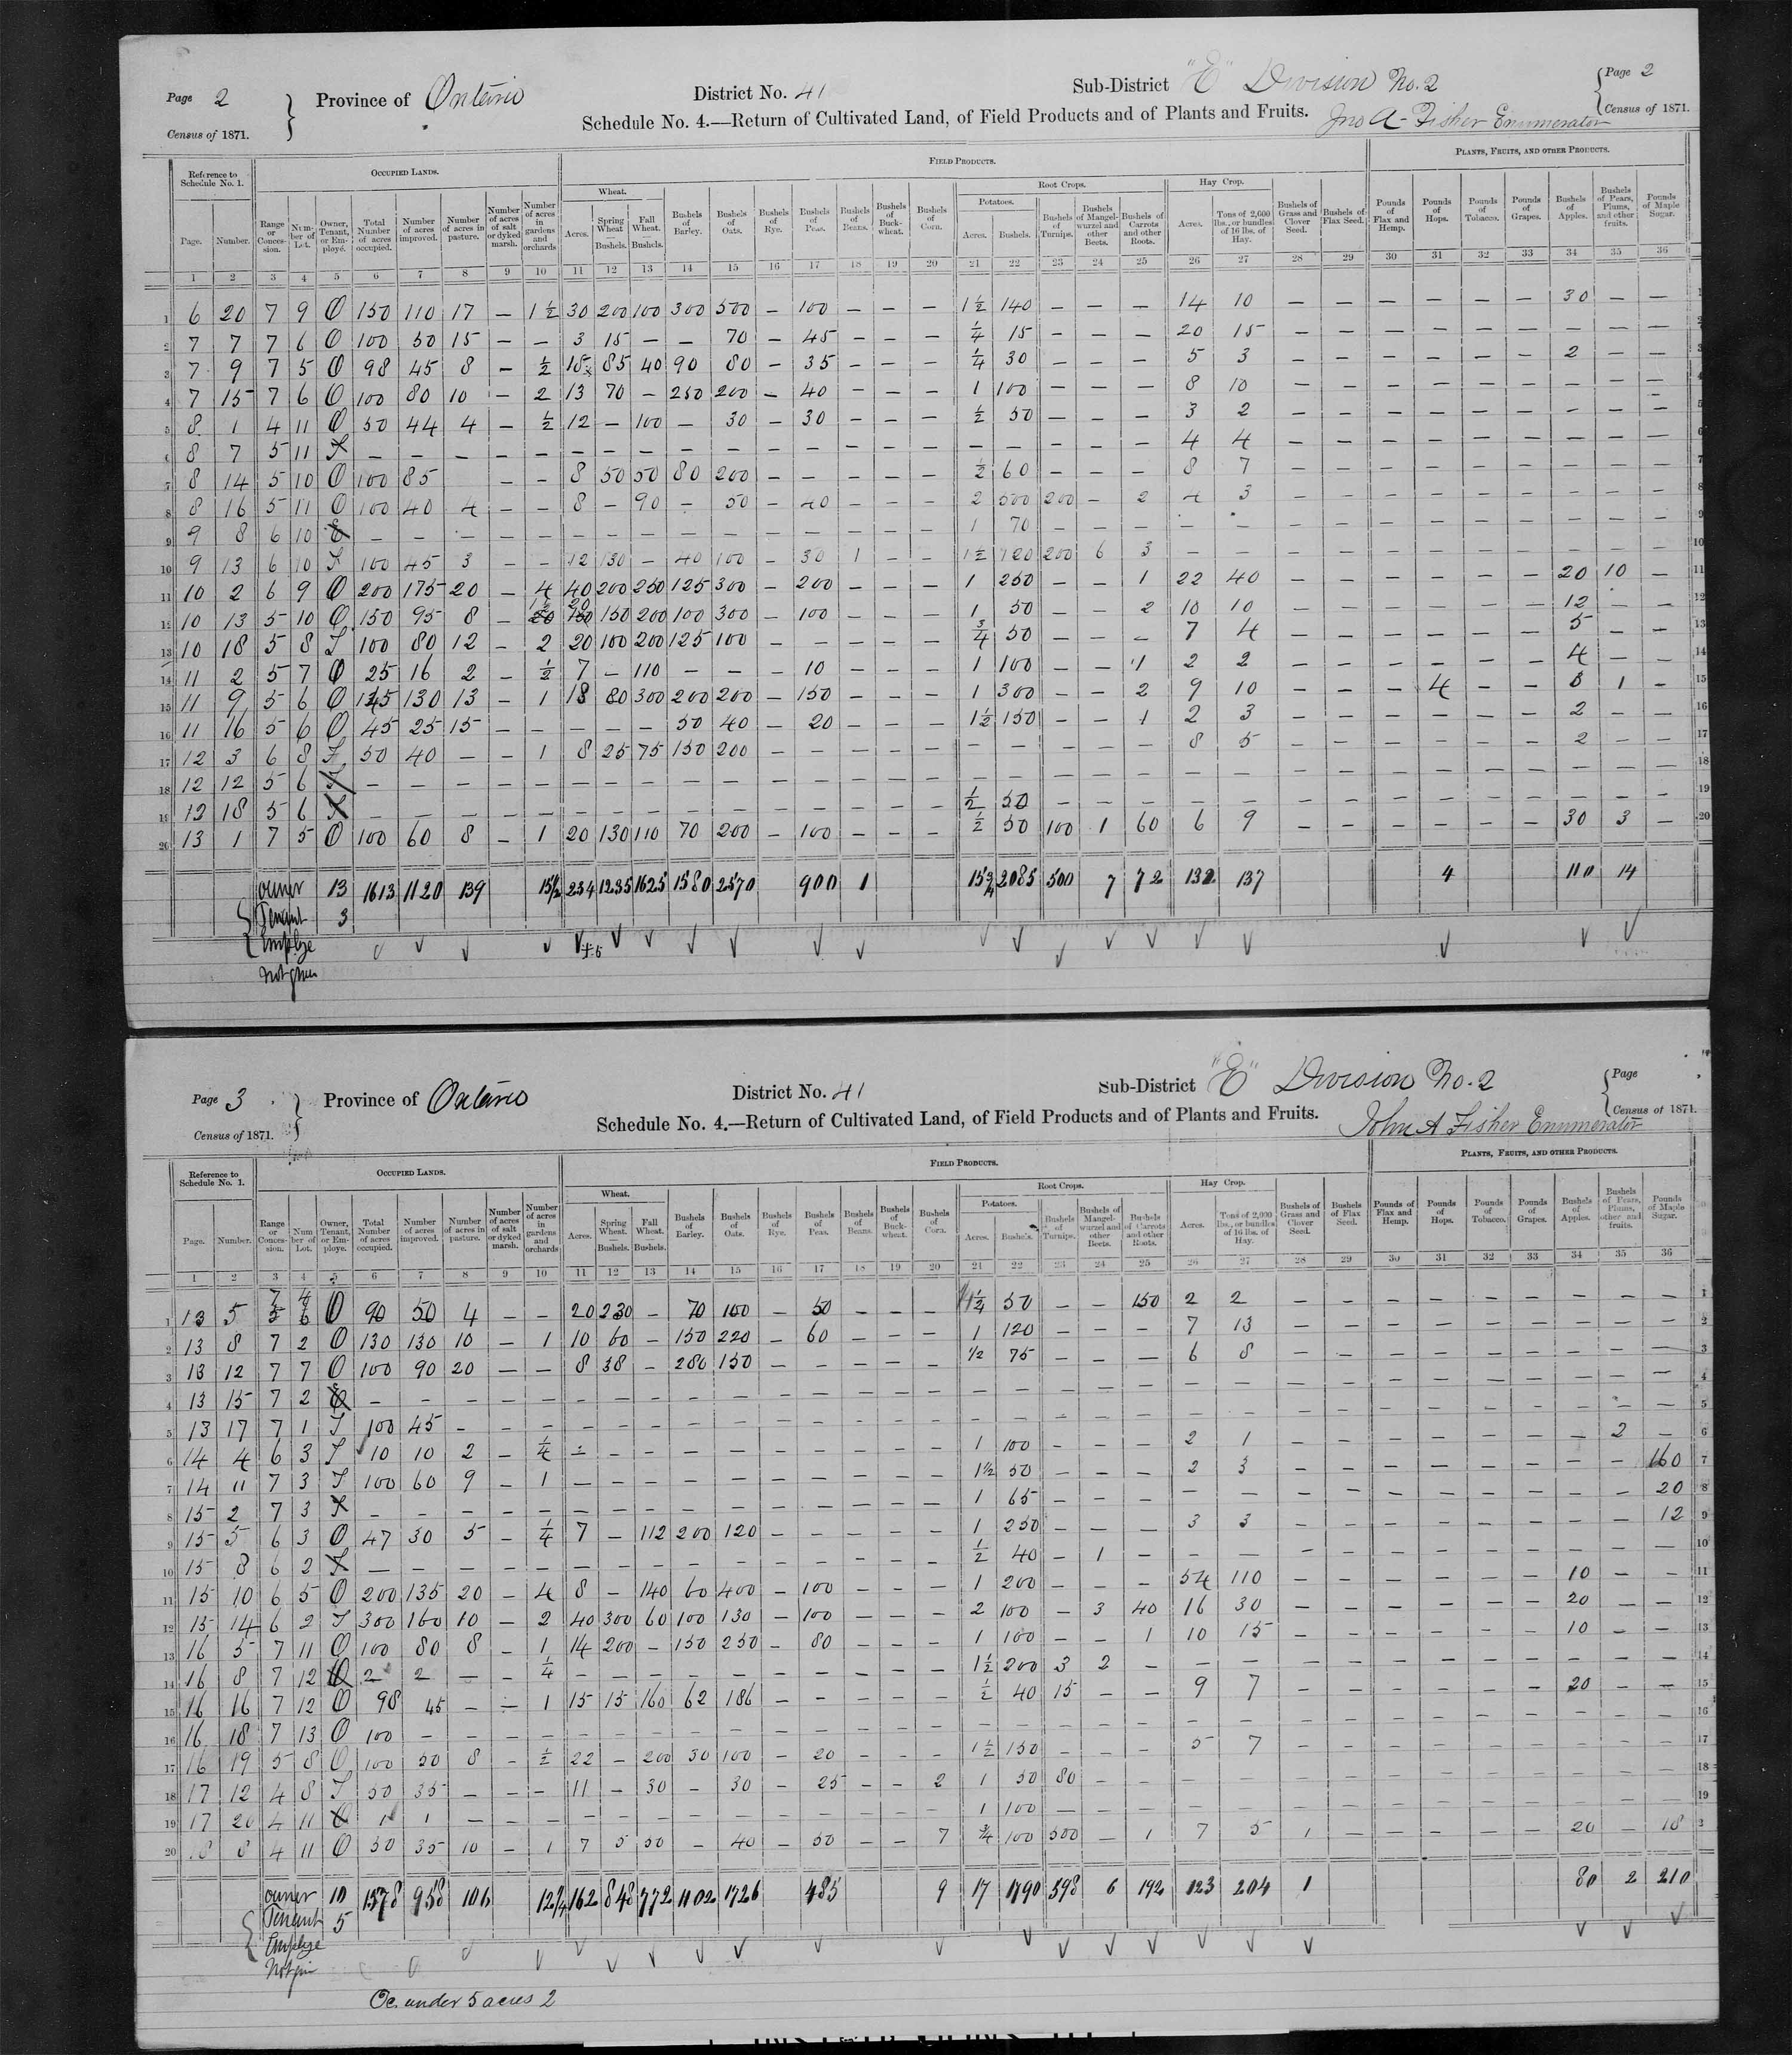 Page 2
Province of Ontario
District No. 41
Sub-District "E" Division No. 2
Page 2
Census of 1871.
Schedule No. 4.—Return of Cultivated Land, of Field Products and of Plants and Fruits.
Jno A. Fisher Enumerator
Census of 1871.
Reference to Schedule No. 1. OCCUPIED LANDS. FIELD PRODUCTS. PLANTS, FRUITS, AND OTHER PRODUCTS.
Wheat. Root Crops. Potatoes. Hay Crop.
Page. Number. Range or Conces-sion. Num-ber of Lot. Owner, Tenant, or Em-ployé. Total Number of acres occupied. Number of acres improved. Number of acres in pasture. Number of acres of salt or dyked marsh. Number of acres in gardens and orchards Acres. Spring Wheat — Bushels. Fall Wheat. — Bushels. Bushels of Barley. Bushels of Oats. Bushels of Rye. Bushels of Peas. Bushels of Beans. Bushels of Buck-wheat. Bushels of Corn. Acres. Bushels. Bushels of Turnips. Bushels of Mangel-wurzel and other Beets. Bushels of Carrots and other Roots. Acres. Tons of 2,000 lbs., or bundles of 16 lbs. of Hay. Bushels of Grass and Clover Seed. Bushels of Flax Seed. Pounds of Flax and Hemp. Pounds of Hops. Pounds of Tobacco. Pounds of Grapes. Bushels of Apples. Bushels of Pears, Plums, and other fruits. Pounds of Maple Sugar.
1 2 3 4 5 6 7 8 9 10 11 12 13 14 15 16 17 18 19 20 21 22 23 24 25 26 27 28 29 30 31 32 33 34 35 36
1 6 20 7 9 O 150 110 17 — 1½ 30 200 100 300 500 — 100 — — — 1½ 140 — — — 14 10 — — — — — — 30 — — 1
2 7 7 7 6 O 100 50 15 — — 3 15 — — 70 — 45 — — — ¼ 15 — — — 20 15 — — — — — — — — — 2
3 7 9 7 5 O 98 45 8 — ½ 15 85 40 90 80 — 35 — — — ¼ 30 — — — 5 3 — — — — — — 2 — — 3
4 7 15 7 6 O 100 80 10 — 2 13 70 — 250 200 — 40 — — 1 100 — — — 8 10 — — — — — — — — — 4
5 8 1 4 11 O 50 44 4 — ½ 12 — 100 — 30 — 30 — — — ½ 50 — — — 3 2 — — — — — — — — — 5
6 8 7 5 11 T — — — — — — — — — — — — — — — — — — — — 4 4 — — — — — — — — — 6
7 8 14 5 10 O 100 85 — — 8 50 50 80 200 — — — — — ½ 60 — — — 8 7 — — — — — — — — — 7
8 8 16 5 11 O 100 40 4 — — 8 — 90 — 50 — 40 — — — 2 500 200 — 2 4 3 — — — — — — — — — 8
9 9 8 6 10 — — — — — — — — — — — — — — — 1 70 — — — — — — — — — — — — — — 9
10 9 13 6 10 T 100 45 3 — — 12 130 — 40 100 — 30 1 — — 1½ 120 200 6 3 — — — — — — — — — — — 10
11 10 2 6 9 O 200 175 20 — 4 40 200 250 125 300 — 200 — — — 1 250 — — 1 22 40 — — — — — — 20 10 — 11
12 10 13 5 10 O 150 95 8 — 1½ 20 150 200 100 300 — 100 — 1 50 — — 2 10 10 — — — — — — 12 — — 12
13 10 18 5 8 T 100 80 12 — 2 20 100 200 125 100 — — — — — ¾ 50 — — — 7 4 — — — — — — 5 — — 13
14 11 2 5 7 O 25 16 2 — ½ 7 — 110 — — — 10 — — — 1 100 — — 1 2 2 — — — — — — 4 — — 14
15 11 9 5 6 O 145 130 13 — 1 18 80 300 200 200 — 150 — — — 1 300 — — 2 9 10 — — — 4 — — 5 1 — 15
16 11 16 5 6 O 45 25 15 — — — — — 50 40 — 20 — — — 1½ 150 — — 1 2 3 — — — — — — 2 — — 16
17 12 3 6 8 T 50 40 — — 1 8 25 75 150 200 — — — — — — — — — — 8 5 — — — — — — 2 — — 17
18 12 12 5 6 T — — — — — — — — — — — — — — — — — — — — — — — — — — — — — — — 18
19 12 18 5 6 T — — — — — — — — — — — — — — — ½ 50 — — — — — — — — — — — — — — 19
20 13 1 7 5 O 100 60 8 — 1 20 130 110 70 200 — 100 — — — ½ 50 100 1 60 6 9 — — — — — — 30 3 — 20
owner 13 1613 1120 139 15½ 234 1235 1625 1580 2570 900 1 15¾ 2085 500 7 72 132 137 4 110 14
Tenant 3
Employe
Not given
Page 3
Province of Ontario
District No. 41
Sub-District "E" Division No. 2
Page
Census of 1871.
Schedule No. 4.—Return of Cultivated Land, of Field Products and of Plants and Fruits.
John A Fisher Enumerator
Census of 1871.
Reference to Schedule No. 1. OCCUPIED LANDS. FIELD PRODUCTS. PLANTS, FRUITS, AND OTHER PRODUCTS.
Wheat. Root Crops. Potatoes. Hay Crop.
Page. Number. Range or Conces-sion. Num ber of Lot. Owner, Tenant, or Em-ploye. Total Number of acres occupied. Number of acres improved. Number of acres in pasture. Number of acres of salt or dyked marsh. Number of acres in gardens and orchards Acres. Spring Wheat. — Bushels. Fall Wheat. — Bushels. Bushels of Barley. Bushels of Oats. Bushels of Rye. Bushels of Peas. Bushels of Beans. Bushels of Buck-wheat. Bushels of Corn. Acres. Bushels. Bushels of Turnips. Bushels of Mangel-wurzel and other Beets. Bushels of Carrots and other Roots. Acres. Tons of 2,000 lbs., or bundles of 16 lbs. of Hay. Bushels of Grass and Clover Seed. Bushels of Flax Seed. Pounds of Flax and Hemp. Pounds of Hops. Pounds of Tobacco. Pounds of Grapes. Bushels of Apples. Bushels of Pears, Plums, other and fruits. Pounds of Maple Sugar.
1 2 3 4 5 6 7 8 9 10 11 12 13 14 15 16 17 18 19 20 21 22 23 24 25 26 27 28 29 30 31 32 33 34 35 36
1 13 5 7 4 O 90 50 4 — — 20 230 — 70 100 — 50 — — — 50 — — 150 2 2 — — — — — — — — — 1
2 13 8 7 2 O 130 130 10 — 1 10 60 — 150 220 — 60 — — — 1 120 — — — 7 13 — — — — — — — — — 2
3 13 12 7 7 O 100 90 20 — — 8 38 — 280 150 — — — — — 1/2 75 — — — 6 8 — — — — — — — — — 3
4 13 15 7 2 — — — — — — — — — — — — — — — — — — — — — — — — — — — — — — — 4
5 13 17 7 1 T 100 45 — — — — — — — — — — — — — — — — — — — — — — — — — — — — — 5
6 14 4 6 3 T 10 10 2 — ¼ — — — — — — — — — — 1 100 — — — 2 1 — — — — — — — 2 — 6
7 14 11 7 3 T 100 60 9 — 1 — — — — — — — — — — 1½ 50 — — — 2 3 — — — — — — — — 160 7
8 15 2 7 3 T — — — — — — — — — — — — — — — 1 65 — — — — — — — — — — — — — 20 8
9 15 5 6 3 O 47 30 5 — ¼ 7 — 112 200 120 — — — — — 1 250 — — — 3 3 — — — — — — — — 12 9
10 15 8 6 2 T — — — — — — — — — — — — — — — ½ 40 — 1 — — — — — — — — — — — — 10
11 15 10 6 5 O 200 135 20 — 4 8 — 140 60 400 — 100 — — — 1 200 — — — 54 110 — — — — — — 10 — — 11
12 15 14 6 2 T 300 160 10 — 2 40 300 60 100 130 — 100 — — — 2 100 — 3 40 16 30 — — — — — — 20 — — 12
13 16 5 7 11 O 100 80 8 — 1 14 200 — 150 250 — 80 — — — 1 100 — — 1 10 15 — — — — — — 10 — — 13
14 16 8 7 12 O 2 2 — — ¼ — — — — — — — — — — 1½ 200 3 2 — — — — — — — — — — — — 14
15 16 16 7 12 O 98 45 — — 1 15 15 160 62 186 — — — — — ½ 40 15 — — 9 7 — — — — — — 20 — — 15
16 16 18 7 13 O 100 — — — — — — — — — — — — — — — — — — — — — — — — — — — — — — 16
17 16 19 5 8 O 100 50 8 — ½ 22 — 200 30 100 — 20 — — — 1½ 150 — — — 5 7 — — — — — — — — — 17
18 17 12 4 8 T 50 35 — — — 11 — 30 — 30 — 25 — — 2 1 50 80 — — — — — — — — — — — — — 18
19 17 20 4 11 O 1 1 — — — — — — — — — — — — — 1 100 — — — — — — — — — — — — — — 19
20 8 4 11 O 50 35 10 — 1 7 5 50 — 40 — 50 — — 7 ¾ 100 500 — 1 7 5 1 — — — — — 20 — 18
owner 10 1578 958 106 12¼ 162 848 772 1102 1726 485 9 17 1790 598 6 192 123 204 1 80 2 210
Tenant 5
Employe
Not given
Oc. under 5 acres 2